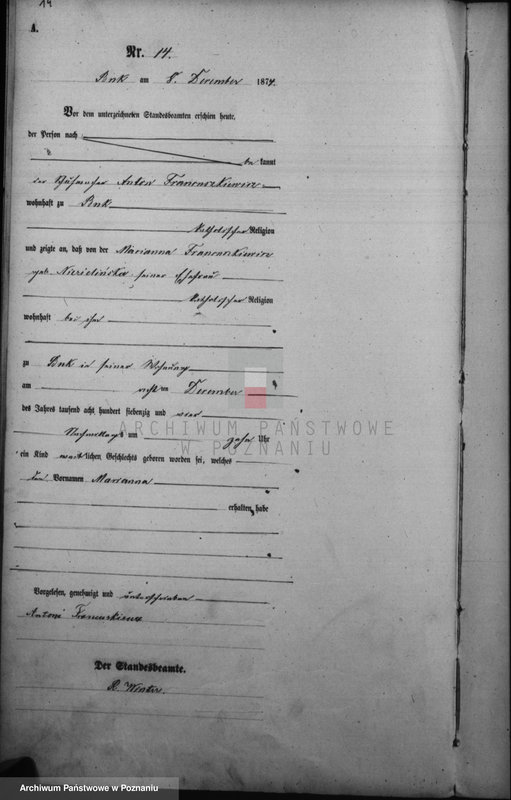 14
A.
Nr. 14.
Buk am 8. December 1874.
Vor dem unterzeichneten Standesbeamten erschien heute,
der Person nach
be kannt
der Schuhmacher Anton Franenszkiewicz
wohnhaft zu Buk
katholischer Religion
und zeigte an, daß von der Marianna
geb. seiner Ehefrau
katholischer Religion
wohnhaft bei ihm
zu Buk in seiner Wohnung
am ten December
des Jahres tausend acht hundert siebenzig und vier
Vormittags um zehn Uhr
ein Kind weiblichen Geschlechts geboren worden sei, welches
den Vornamen Marianna
erhalten habe
Vorgelesen, genehmigt und unterschrieben
Antoni
Der Standesbeamte.
R. Winter
ARCHIWUM PAŃSTWOWE
W POZNANIU
Archiwum Państwowe w Poznaniu